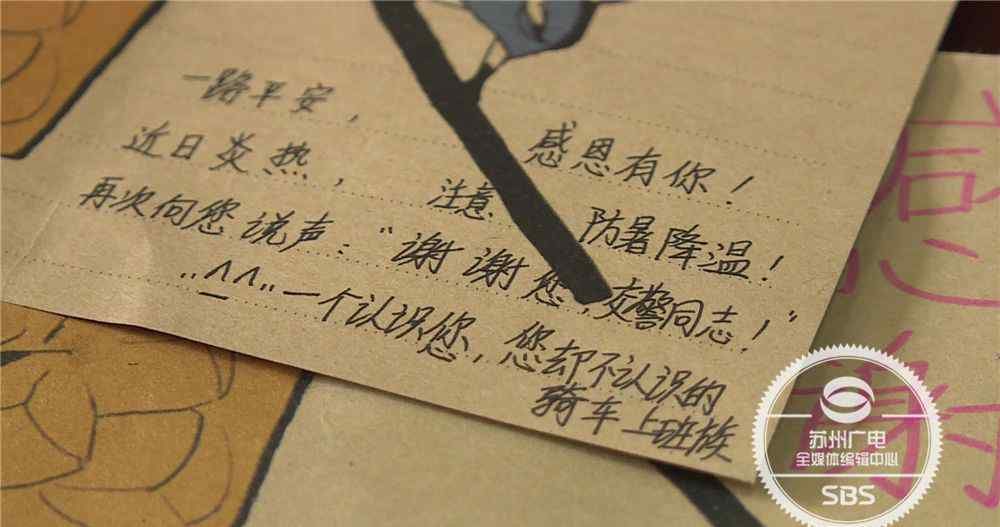 一路平安，感恩有你！
近日炎热，注意防暑降温！
再次向您说声：“谢谢您，交警同志！”
“^_^”一个认识您，您却不认识的
骑车上班族
谢
苏州广电
全媒体编辑中心
SBS